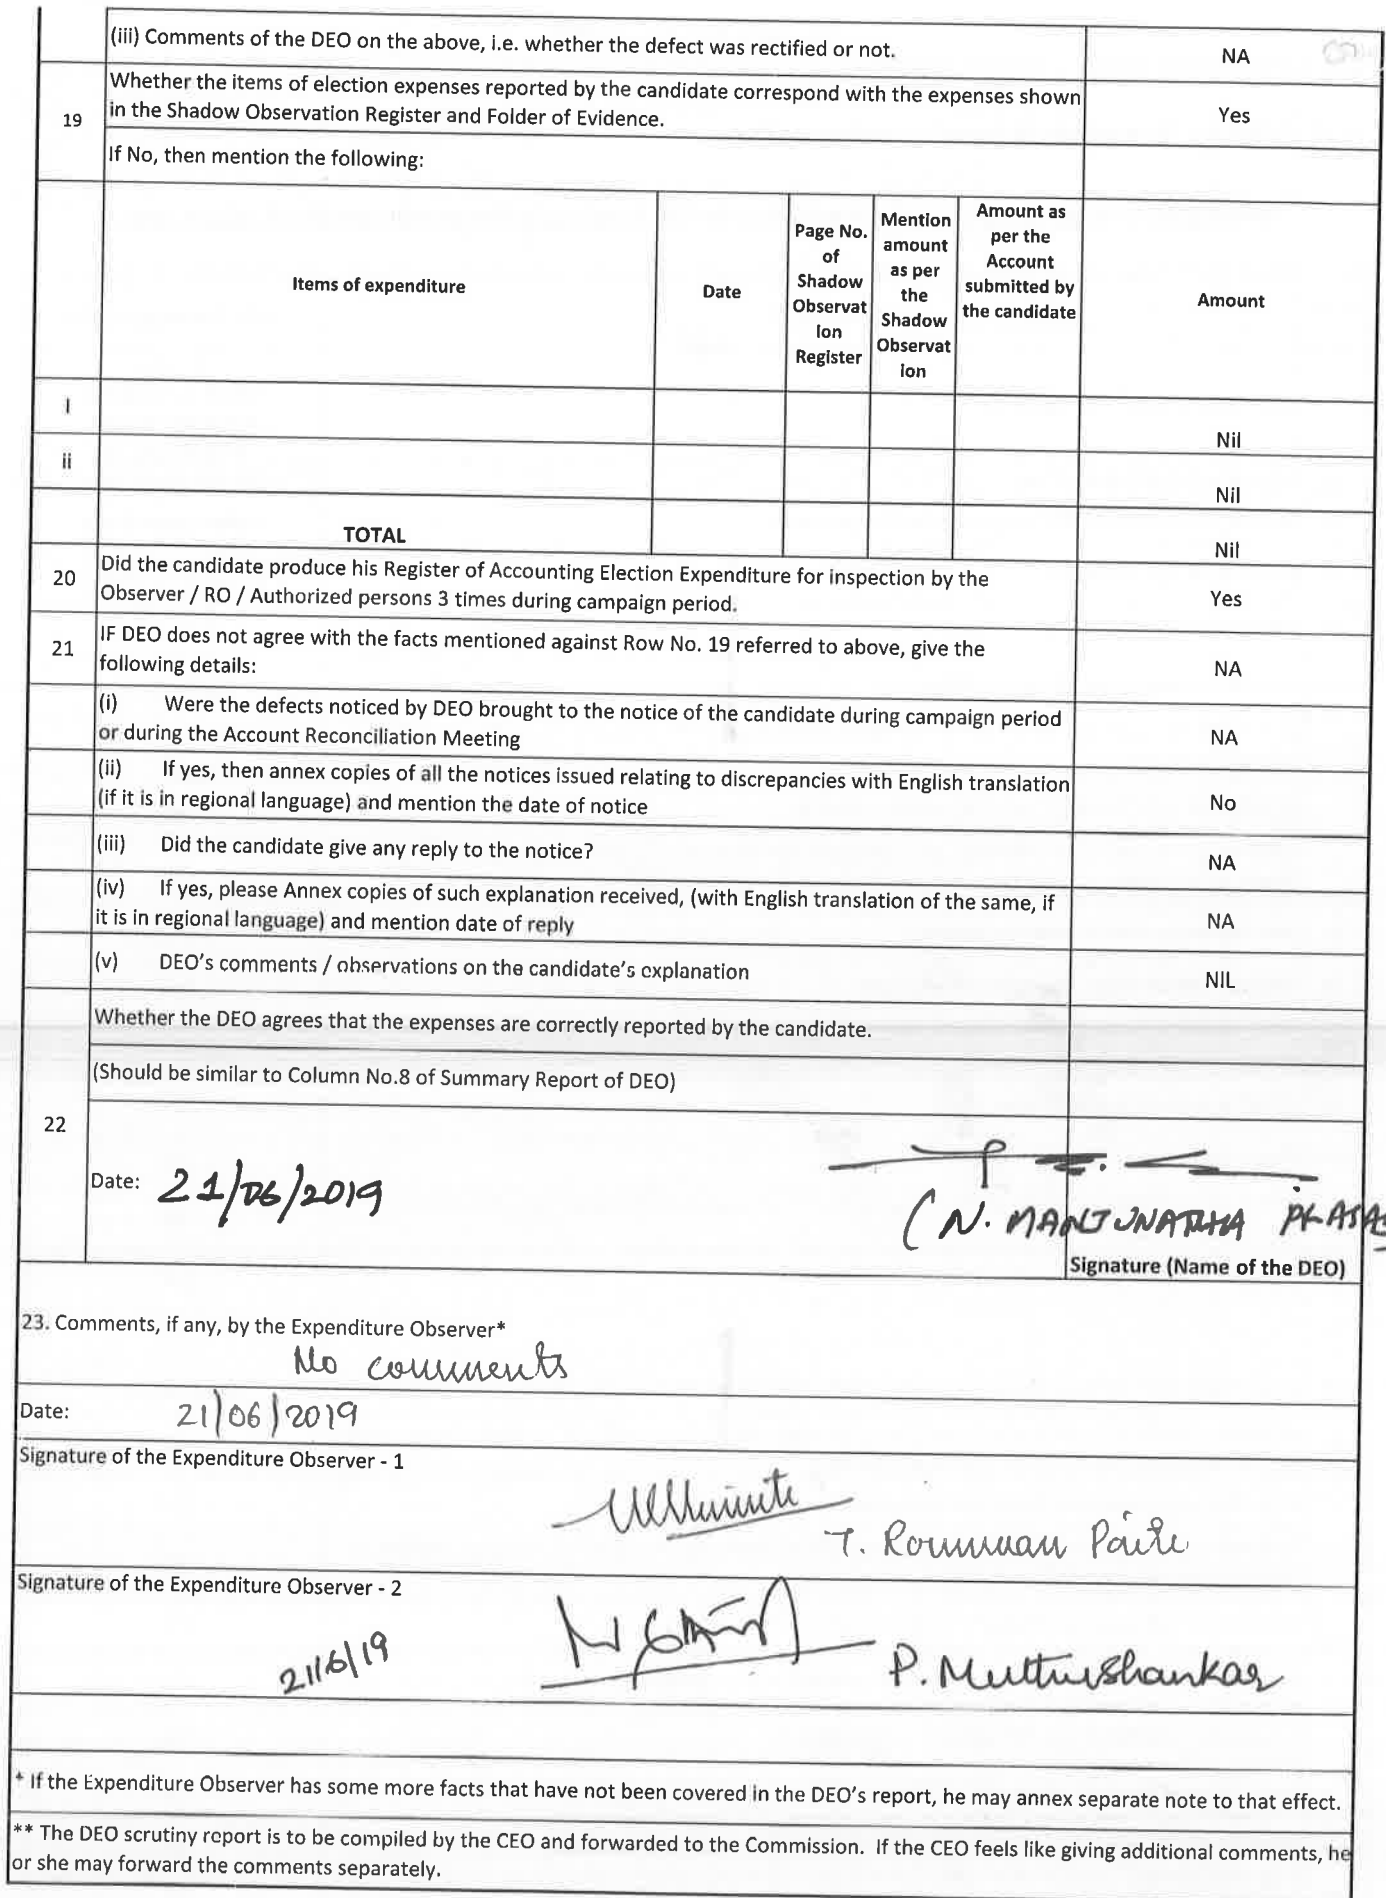 (iii) Comments of the DEO on the above, i.e. whether the defect was rectified or not.
NA
19
Whether the items of election expenses reported by the candidate correspond with the expenses shown
in the Shadow Observation Register and Folder of Evidence.
Yes
If No, then mention the following:
Items of expenditure
Date
Page No.
of
Shadow
Observat
Ion
Register
Mention
amount
as per
the
Shadow
Observat
ion
Amount as
per the
Account
submitted by
the candidate
Amount
I
Nil
ii
Nil
TOTAL
Nil
20
Did the candidate produce his Register of Accounting Election Expenditure for inspection by the
Observer / RO / Authorized persons 3 times during campaign period.
Yes
21
IF DEO does not agree with the facts mentioned against Row No. 19 referred to above, give the
following details:
NA
(i) Were the defects noticed by DEO brought to the notice of the candidate during campaign period
or during the Account Reconciliation Meeting
NA
(ii) If yes, then annex copies of all the notices issued relating to discrepancies with English translation
(if it is in regional language) and mention the date of notice
No
(iii) Did the candidate give any reply to the notice?
NA
(iv) If yes, please Annex copies of such explanation received, (with English translation of the same, if
it is in regional language) and mention date of reply
NA
(v) DEO's comments / observations on the candidate's explanation
NIL
22
Whether the DEO agrees that the expenses are correctly reported by the candidate.
(Should be similar to Column No.8 of Summary Report of DEO)
Date: 21/06/2019
(N. MANJUNATHA PRASA
Signature (Name of the DEO)
23. Comments, if any, by the Expenditure Observer*
No comments
Date: 21/06/2019
Signature of the Expenditure Observer - 1
T. Roumuan Paite
Signature of the Expenditure Observer - 2
21/6/19
P. Muthushankar
* If the Expenditure Observer has some more facts that have not been covered in the DEO's report, he may annex separate note to that effect.
** The DEO scrutiny report is to be compiled by the CEO and forwarded to the Commission. If the CEO feels like giving additional comments, he
or she may forward the comments separately.